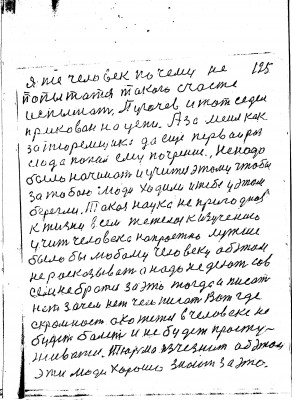 125
я те человек почему не
попытатся такого счастя
испытат, Пугочев и тот сидел
прикован на цепи. А за меня как
за тюремщика да еще первай раз
сюда попал ему почтение, Ненадо
было начинат и учит этому чтобы
за тобою люди ходили и тебе у этом
берегли. Такая наука не пригодная
к жизни всем тежелая к изучению
учит человека напрастно лучше
было бы любому человеку об этом
не росказыват а надо не делат сов
сем не братся за это тогда и писат
нет зачем нет чем писат Вот где
скромност окажется в человека не
будет балеть и не будет просту-
живатся. Тюрма изчезнит об этом
эти люди хорошо знают за это.